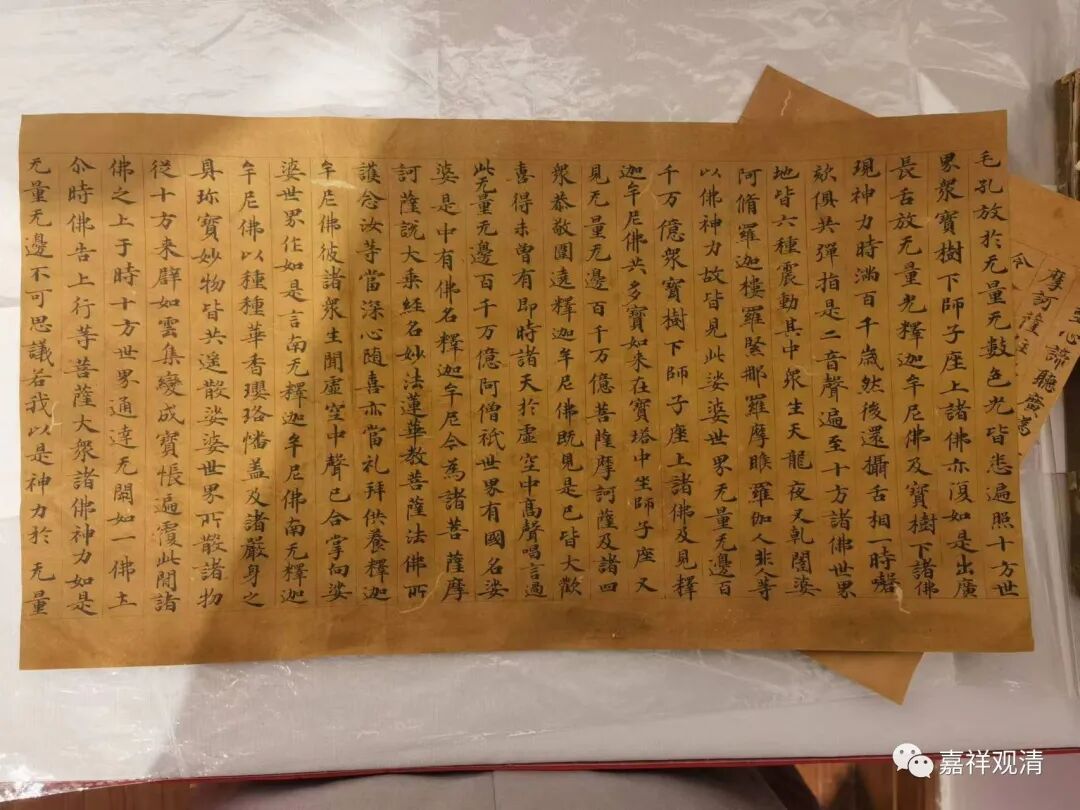 至心諦聽廣為
摩訶薩住
令
毛孔放於无量无數色光皆悉遍照十方世
界衆寶樹下師子座上諸佛亦復如是出廣
長舌放无量光釋迦牟尼佛及寶樹下諸佛
現神力時滿百千歲然後還攝舌相一時謦
欬俱共彈指是二音聲遍至十方諸佛世界
地皆六種震動其中衆生天龍夜叉乹闥婆
阿脩羅迦樓羅緊那羅摩睺羅伽人非人等
以佛神力故皆見此娑婆世界无量无邊百
千万億衆寶樹下師子座上諸佛及見釋
迦牟尼佛共多寶如来在寶塔中坐師子座又
見无量无邊百千万億菩薩摩訶薩及諸四
衆恭敬圍遶釋迦牟尼佛既見是已皆大歡
喜得未曾有即時諸天於虛空中高聲唱言過
此无量无邊百千万億阿僧祇世界有國名娑
婆是中有佛名釋迦牟尼今為諸菩薩摩
訶薩說大乘經名妙法蓮華教菩薩法佛所
護念汝等當深心随喜亦當礼拜供養釋迦
牟尼佛彼諸衆生聞虛空中聲已合掌向娑
婆世界作如是言南无釋迦牟尼佛南无釋迦
牟尼佛以種種華香瓔珞幡盖及諸嚴身之
具珎寶妙物皆共遙散娑婆世界所散諸物
從十方来辟如雲集變成寶帳遍覆此閒諸
佛之上于時十方世界通達无閡如一佛土
尒時佛告上行等菩薩大衆諸佛神力如是
无量无邊不可思議若我以是神力於无量
嘉祥观清